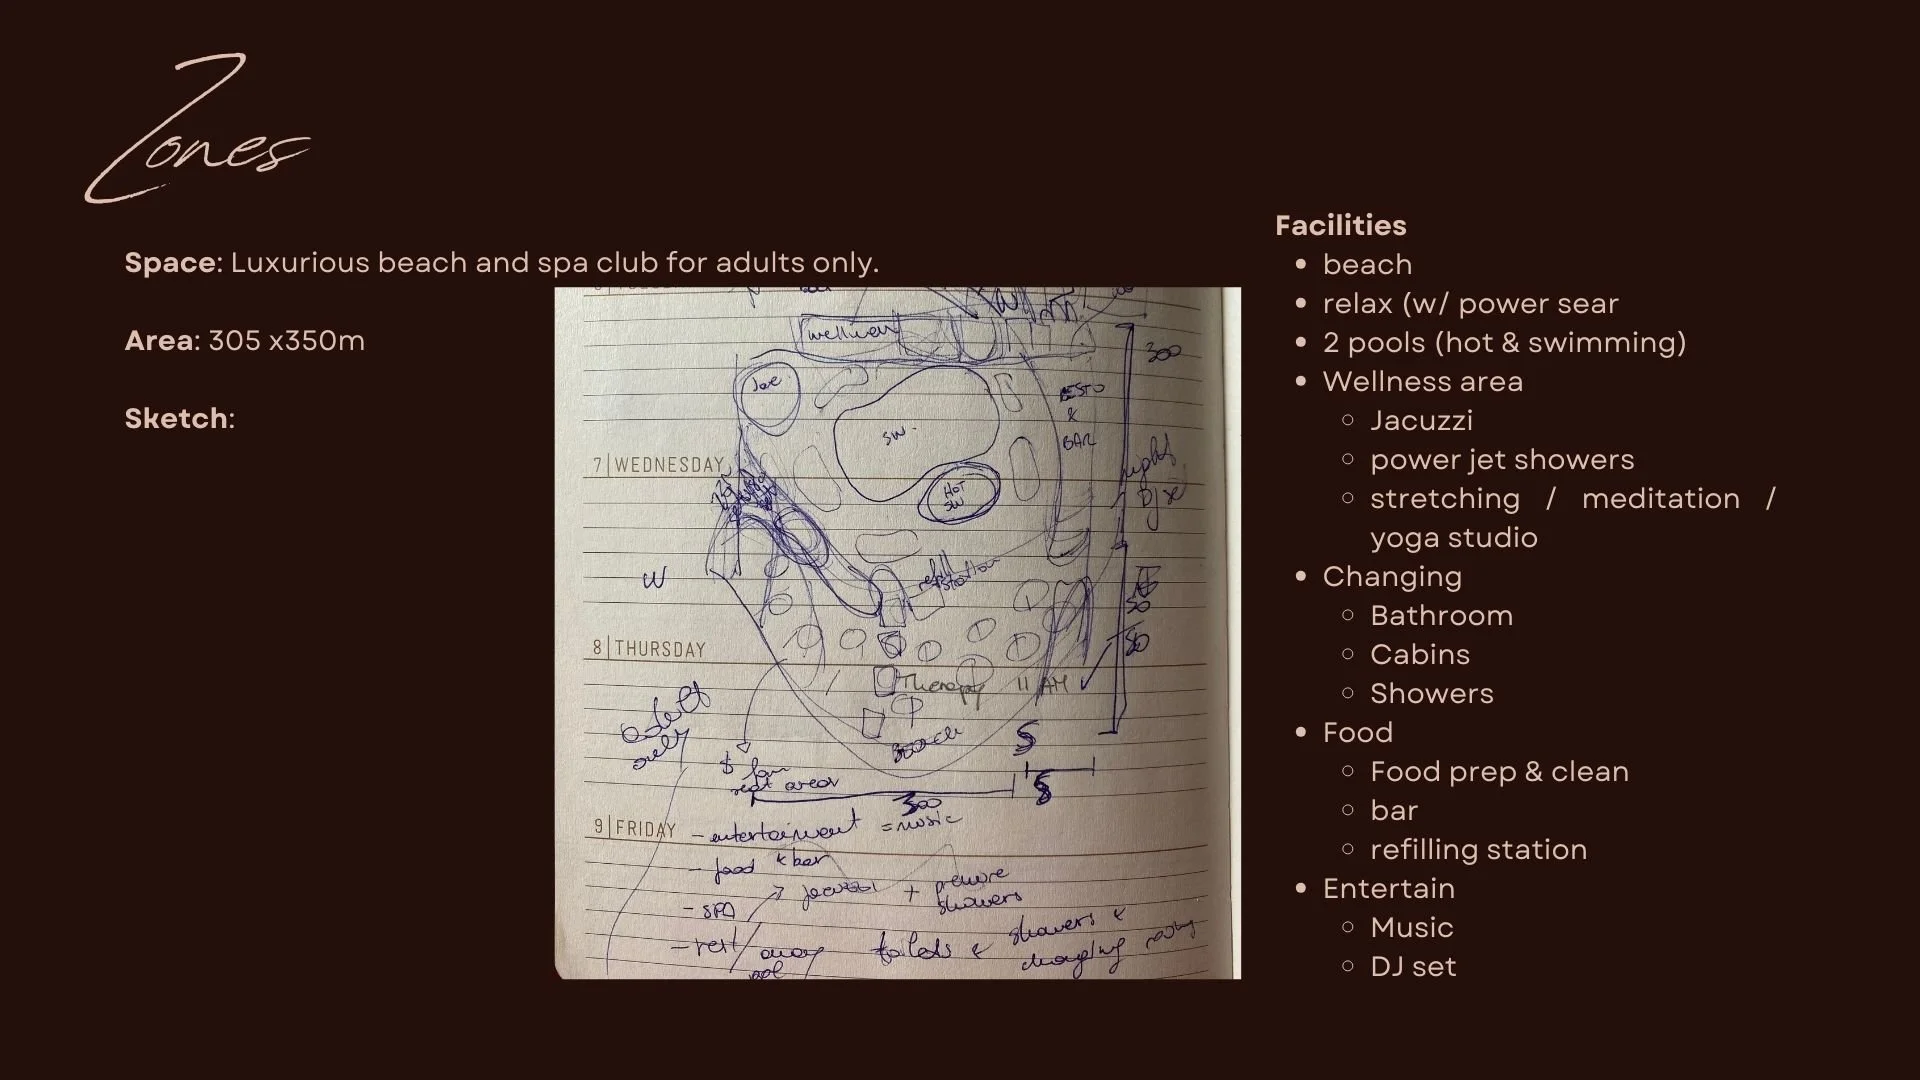 Zones
Space: Luxurious beach and spa club for adults only.
Area: 305 x350m
Sketch:
wellness
300
Jac.
RESTO
&
BAR
SW.
7 WEDNESDAY
HOT
SW
night
DJ set
refill
station
W
50
50
8 THURSDAY
Therapy 11 AM
adult
only
Beach
5
$ for
rest areas
5
300
9 FRIDAY
- entertainment = music
- food & bar
jacuzzi + pressure
showers
- SPA
- rest / away
pool
toilets & showers &
changing
Facilities
beach
relax (w/ power sear
2 pools (hot & swimming)
Wellness area
Jacuzzi
power jet showers
stretching / meditation /
yoga studio
Changing
Bathroom
Cabins
Showers
Food
Food prep & clean
bar
refilling station
Entertain
Music
DJ set